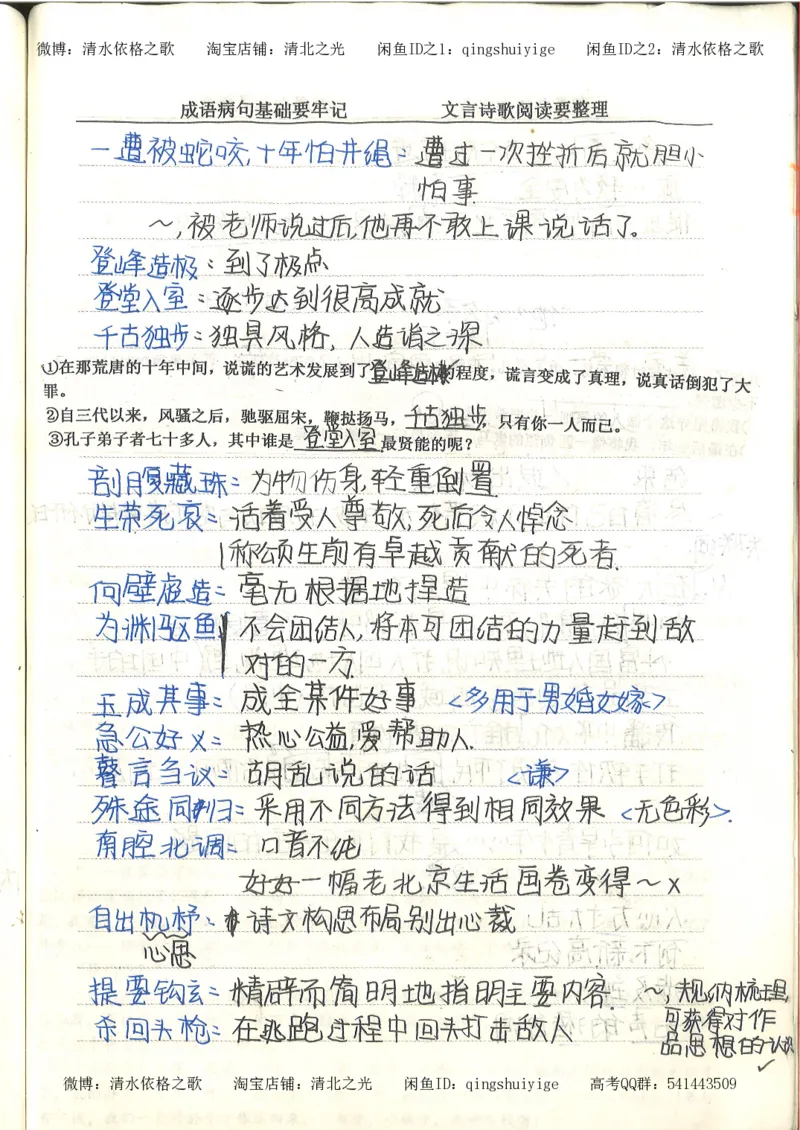 微博：清水依格之歌 淘宝店铺：清北之光 闲鱼ID之1：qingshuiyige 闲鱼ID之2：清水依格之歌
成语病句基础要牢记 文言诗歌阅读要整理
一遭被蛇咬,十年怕井绳：遭过一次挫折后就胆小
怕事
～,被老师说过后,他再不敢上课说话了。
登峰造极：到了极点
登堂入室：逐步达到很高成就
千古独步：独具风格，人造诣之深
①在那荒唐的十年中间，说谎的艺术发展到了登峰造极的程度，谎言变成了真理，说真话倒犯了大
罪。
②自三代以来，风骚之后，驰驱屈宋，鞭挞扬马，千古独步，只有你一人而已。
③孔子弟子者七十多人，其中谁是登堂入室最贤能的呢？
剖腹藏珠：为物伤身,轻重倒置
生荣死哀：活着受人尊敬,死后令人悼念
称颂生前有卓越贡献的死者.
向壁虚造：毫无根据地捏造
为渊驱鱼 不会团结人,将本可团结的力量赶到敌
对的一方
玉成其事：成全某件好事 <多用于男婚女嫁>
急公好义：热心公益,爱帮助人.
瞽言刍议：胡乱说的话 <谦>
殊途同归：采用不同方法得到相同效果 <无色彩>.
南腔北调：口音不纯
好好一幅老北京生活画卷变得～x
自出机杼：诗文构思布局别出心裁
心思
提要钩玄：精辟而简明地指明主要内容. ～,归纳梳理,
可获得对作
杀回头枪：在逃跑过程中回头打击敌人
品思想的认识
✓
微博：清水依格之歌 淘宝店铺：清北之光 闲鱼ID：qingshuiyige 高考QQ群：541443509